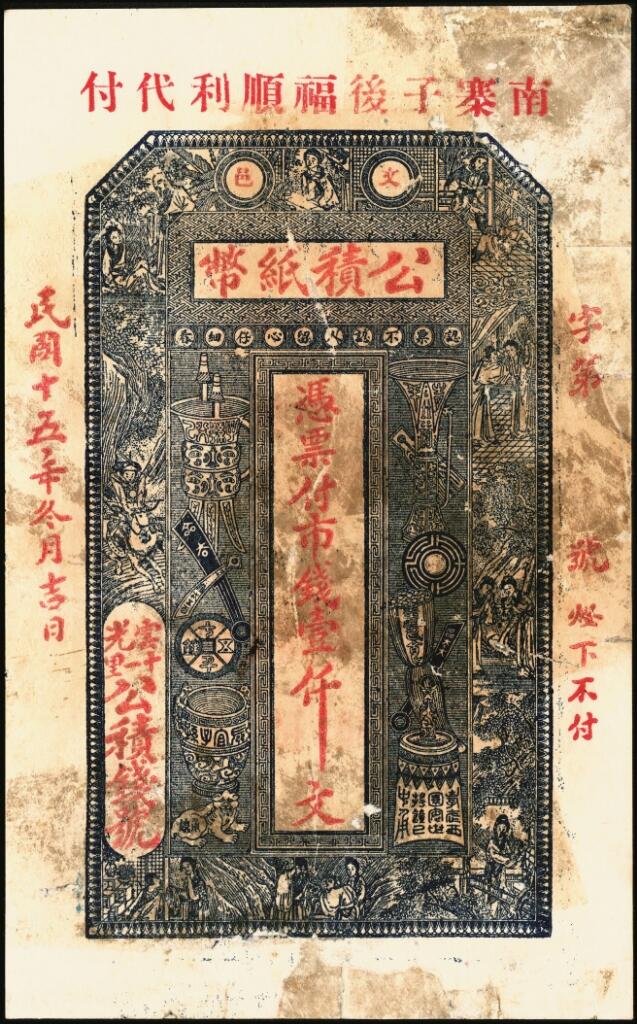 南寨子後福順利代付
文邑
公積紙幣
認票不認人留心仔細看
字第
號
下不付
憑票付市錢壹仟文
公積錢號
民國十五年冬月吉日